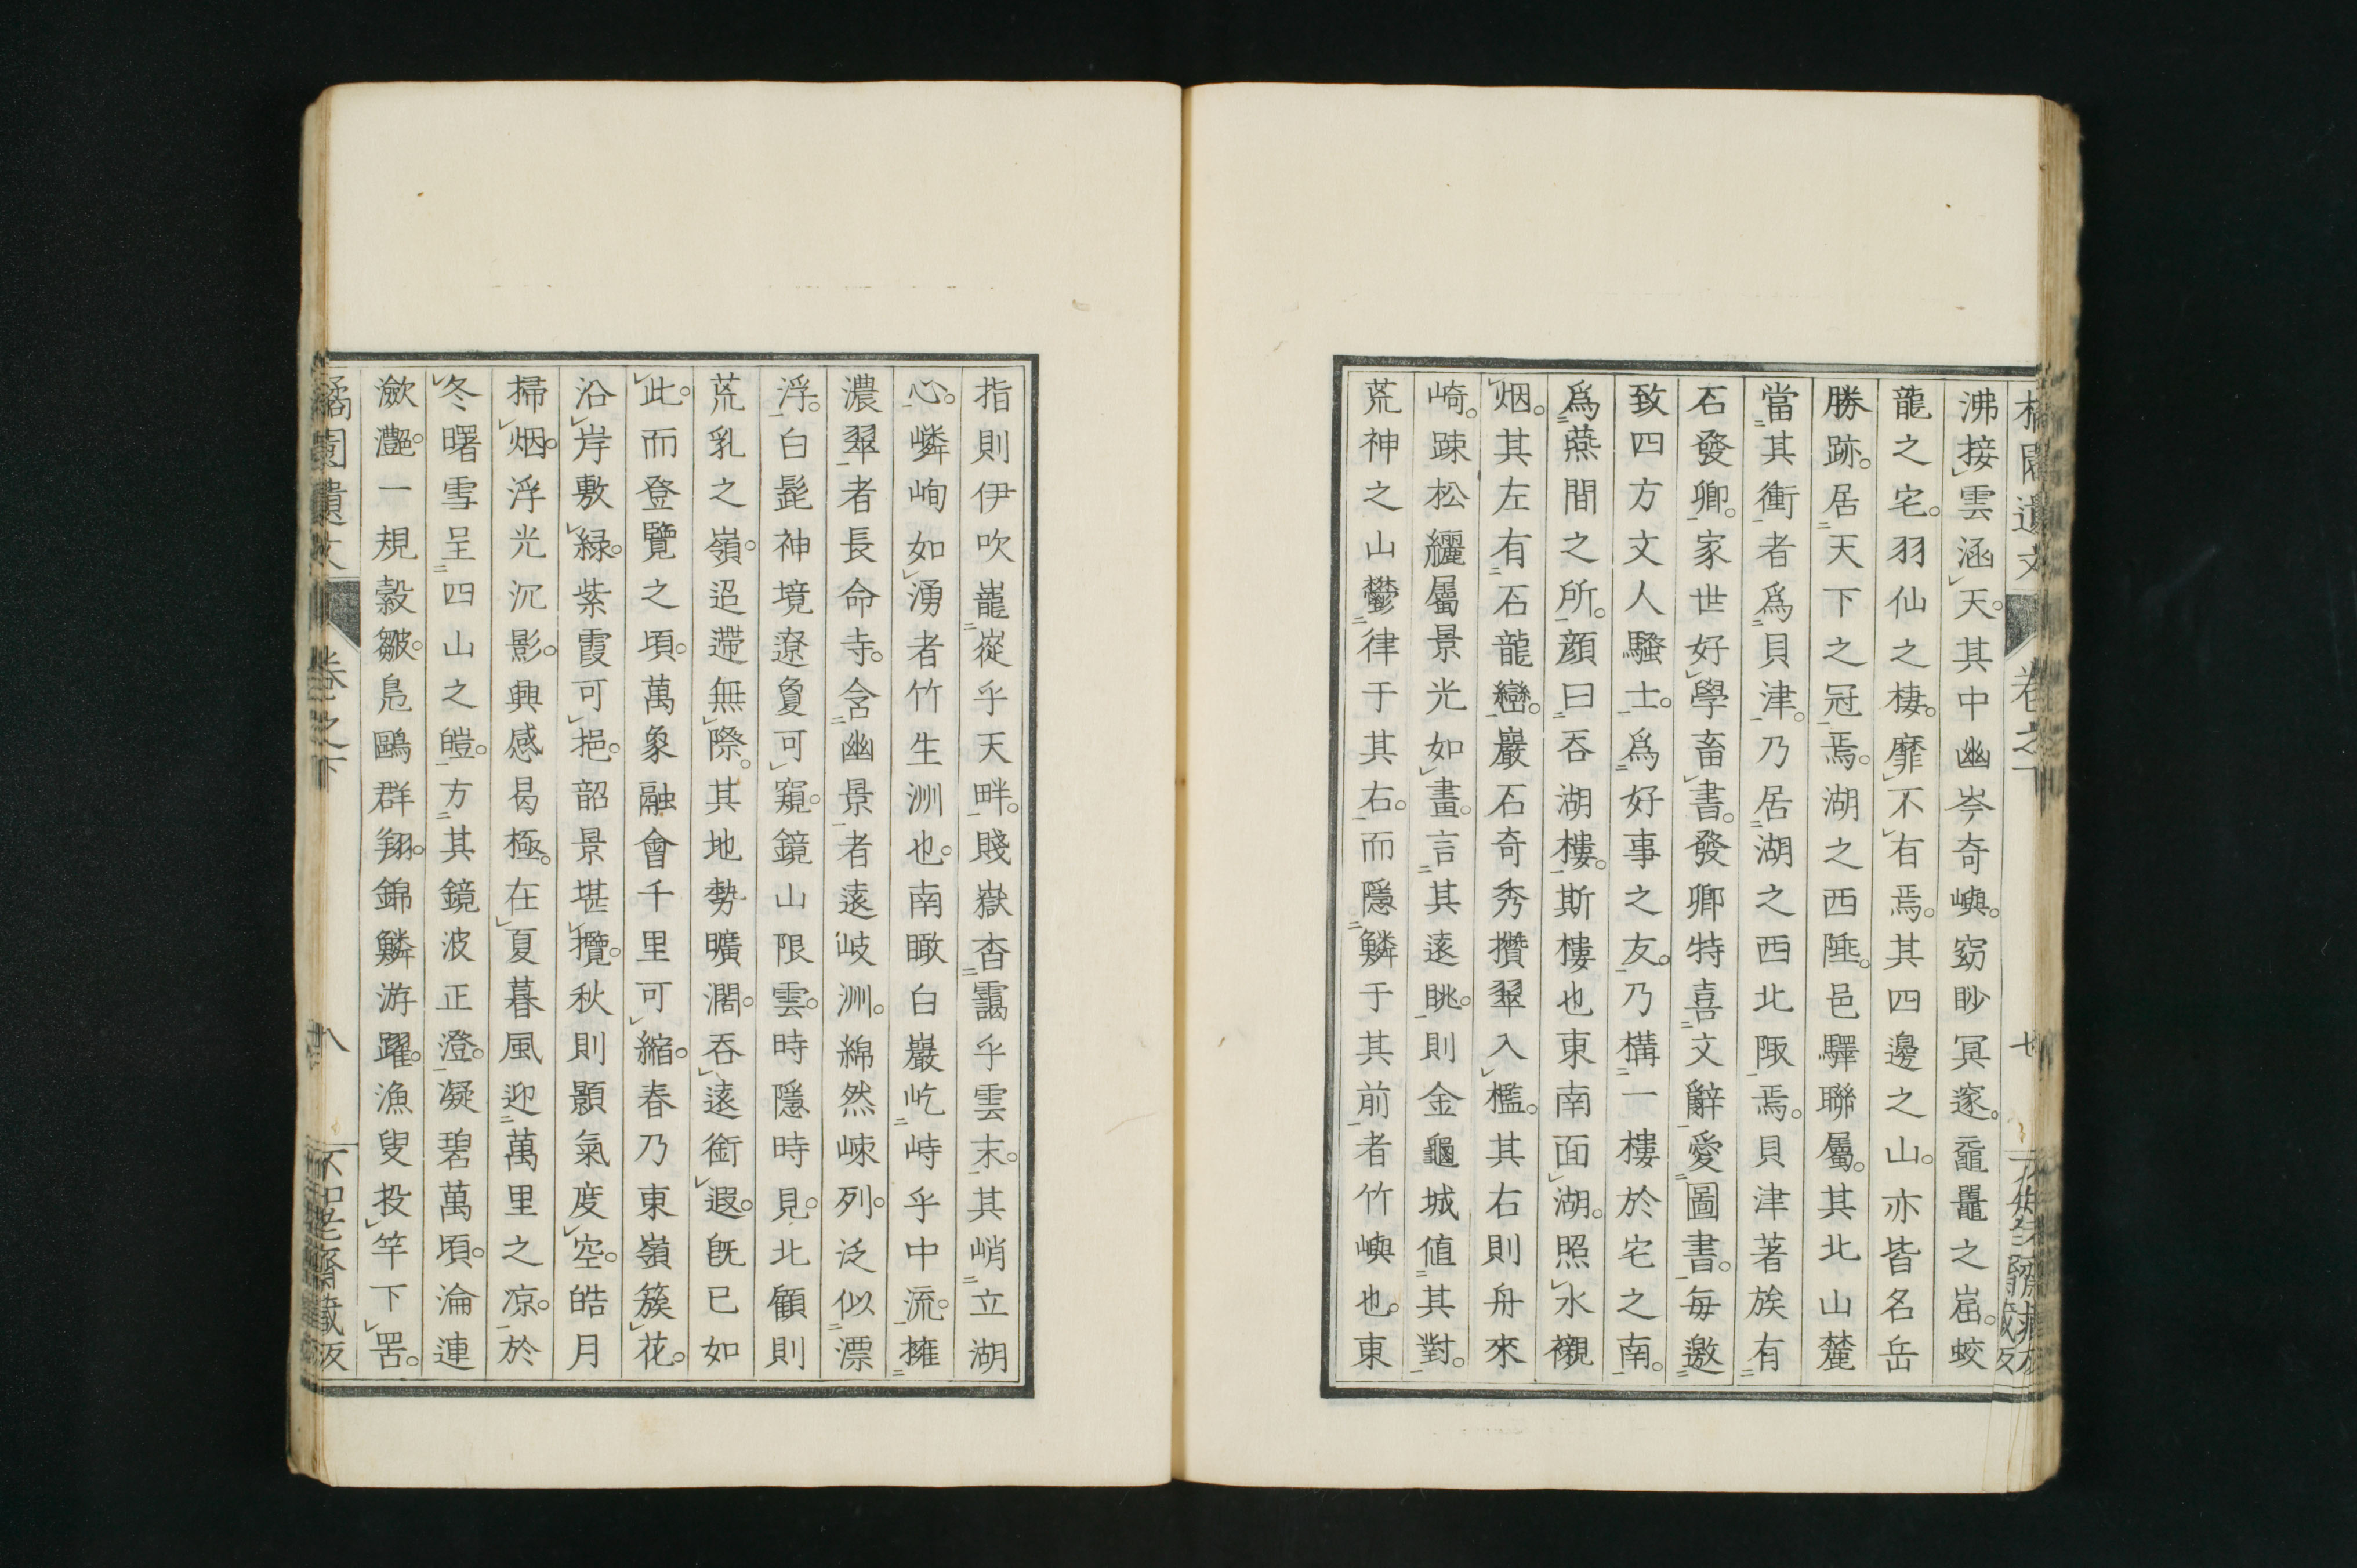 沸接雲涵天。其中幽岑奇嶼。窈眇冥邃。黿鼉之崫。蛟
龍之宅。羽仙之棲。靡不有焉。其四邊之山。亦皆名岳
勝跡。居天下之冠焉。湖之西陲。邑驛聯屬。其北山麓
當其衝者爲貝津。乃居湖之西北陬焉。貝津著族有
石發卿。家世好學畜書。發卿特喜文辭愛圖書。每邀
致四方文人騷士。爲好事之友。乃構一樓於宅之南。
爲燕間之所。顔曰吞湖樓。斯樓也東南面湖。照水襯
烟。其左有石龍巒。巖石奇秀攢翠入檻。其右則舟來
崎。踈松纚屬景光如畫。言其遠眺。則金龜城値其對。
荒神之山鬱律于其右。而隱鱗于其前者竹嶼也。東
指則伊吹巃嵸乎天畔。賤嶽杳靄乎雲末。其峭立湖
心。嶙峋如湧者竹生洲也。南瞰白巖屹峙乎中流。擁
濃翠者長命寺。含幽景者遠岐洲。綿然崠列。泛似漂
浮。白髭神境遼敻可窺。鏡山限雲。時隱時見。北顧則
荒乳之嶺。迢遰無際。其地勢曠濶。吞遠銜遐。既已如
此。而登覽之頃。萬象融會千里可縮。春乃東嶺簇花。
沿岸敷緑。紫霞可挹。韶景堪攬。秋則顥氣度空。皓月
掃烟。浮光沉影。興感曷極。在夏暮風迎萬里之凉。於
冬曙雪呈四山之皚。方其鏡波正澄。凝碧萬頃。淪連
瀲灔。一規縠皺。鳧鷗群翔。錦鱗游躍。漁叟投竿下罟。
橘園遺文 卷之下 八